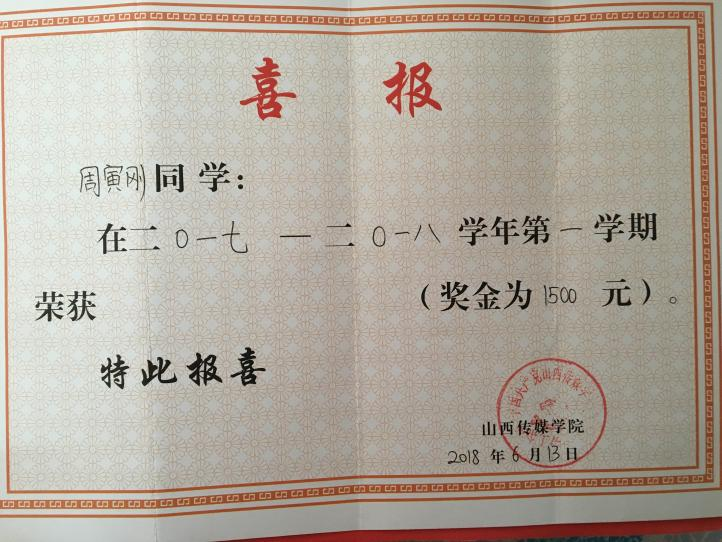 喜报
周寅刚同学：
在二0一七—二0一八学年第一学期
荣获（奖金为1500元）。
特此报喜
山西传媒学院
2018年6月13日